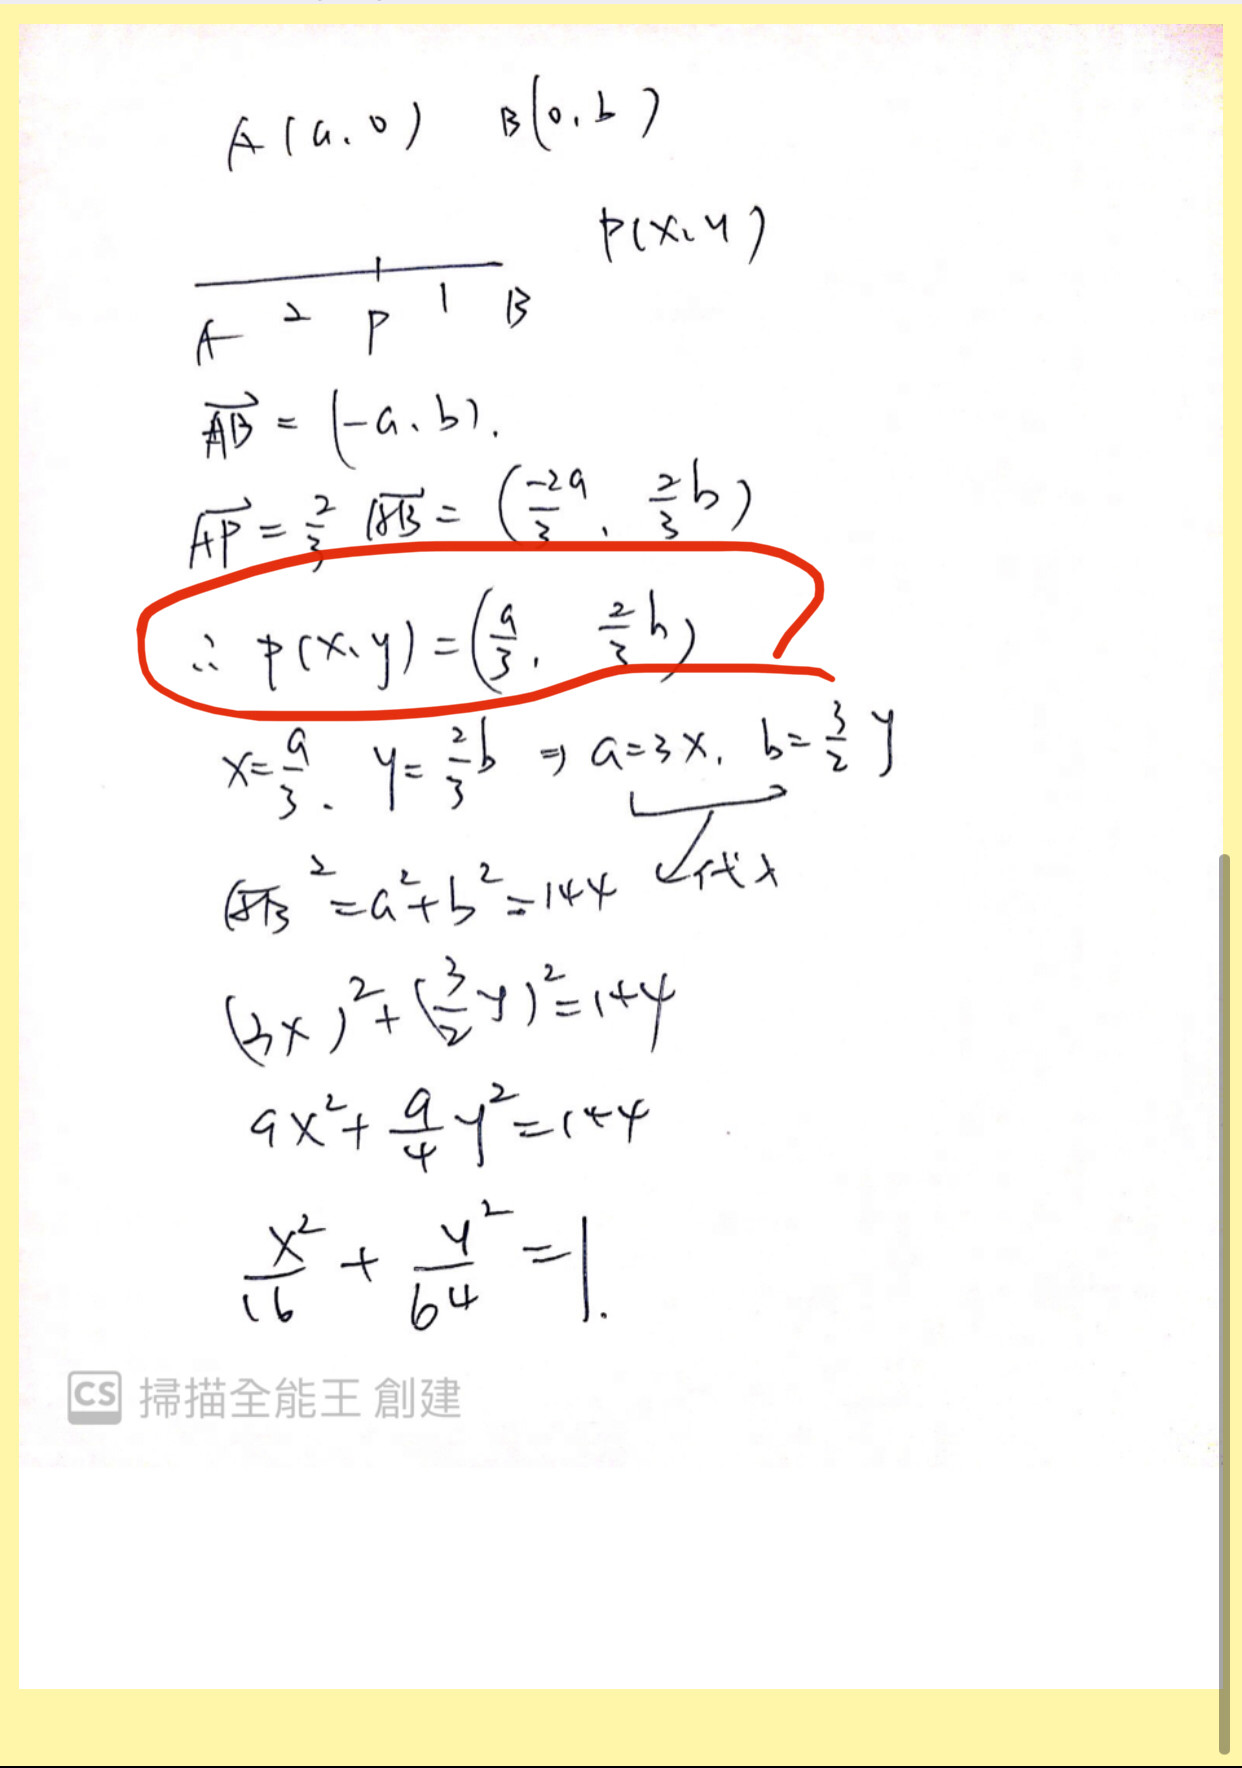 A(a,0) B(0,b)
P(x,y)
A 2 P 1 B
$\overrightarrow{AB}$ = (-a, b).
$\overrightarrow{AP}$ = $\frac{2}{3}$ $\overrightarrow{AB}$ = ($\frac{-2a}{3}$, $\frac{2}{3}$b)
∴ P(x,y) = ($\frac{a}{3}$, $\frac{2}{3}$b)
x=$\frac{a}{3}$, y=$\frac{2}{3}$b ⇒ a=3x, b=$\frac{3}{2}$y
代入
$\overline{AB}$² = a²+b² = 144
(3x)²+($\frac{3}{2}$y)² = 144
9x²+$\frac{9}{4}$y² = 144
$\frac{x²}{16}$ + $\frac{y²}{64}$ = 1.
CS 掃描全能王 創建